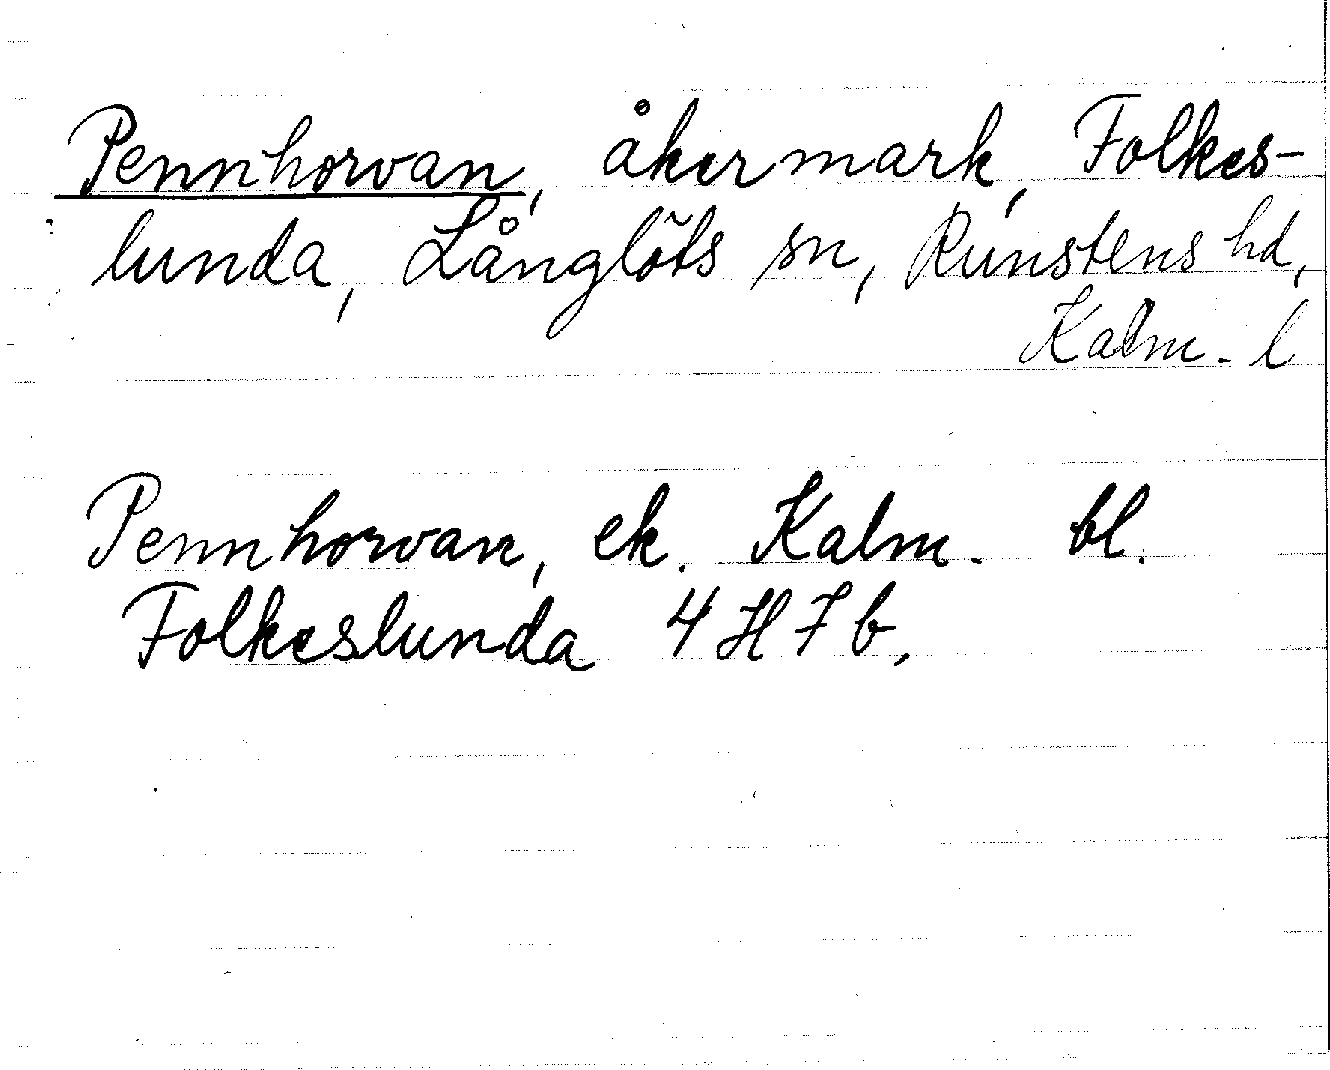 Pennhorvan, åkermark, Folkes-
lunda, Långlöts sn, Runstens hd,
Kalm. l
Pennhorvan, ek. Kalm. bl.
Folkeslunda 4 H 7 b,